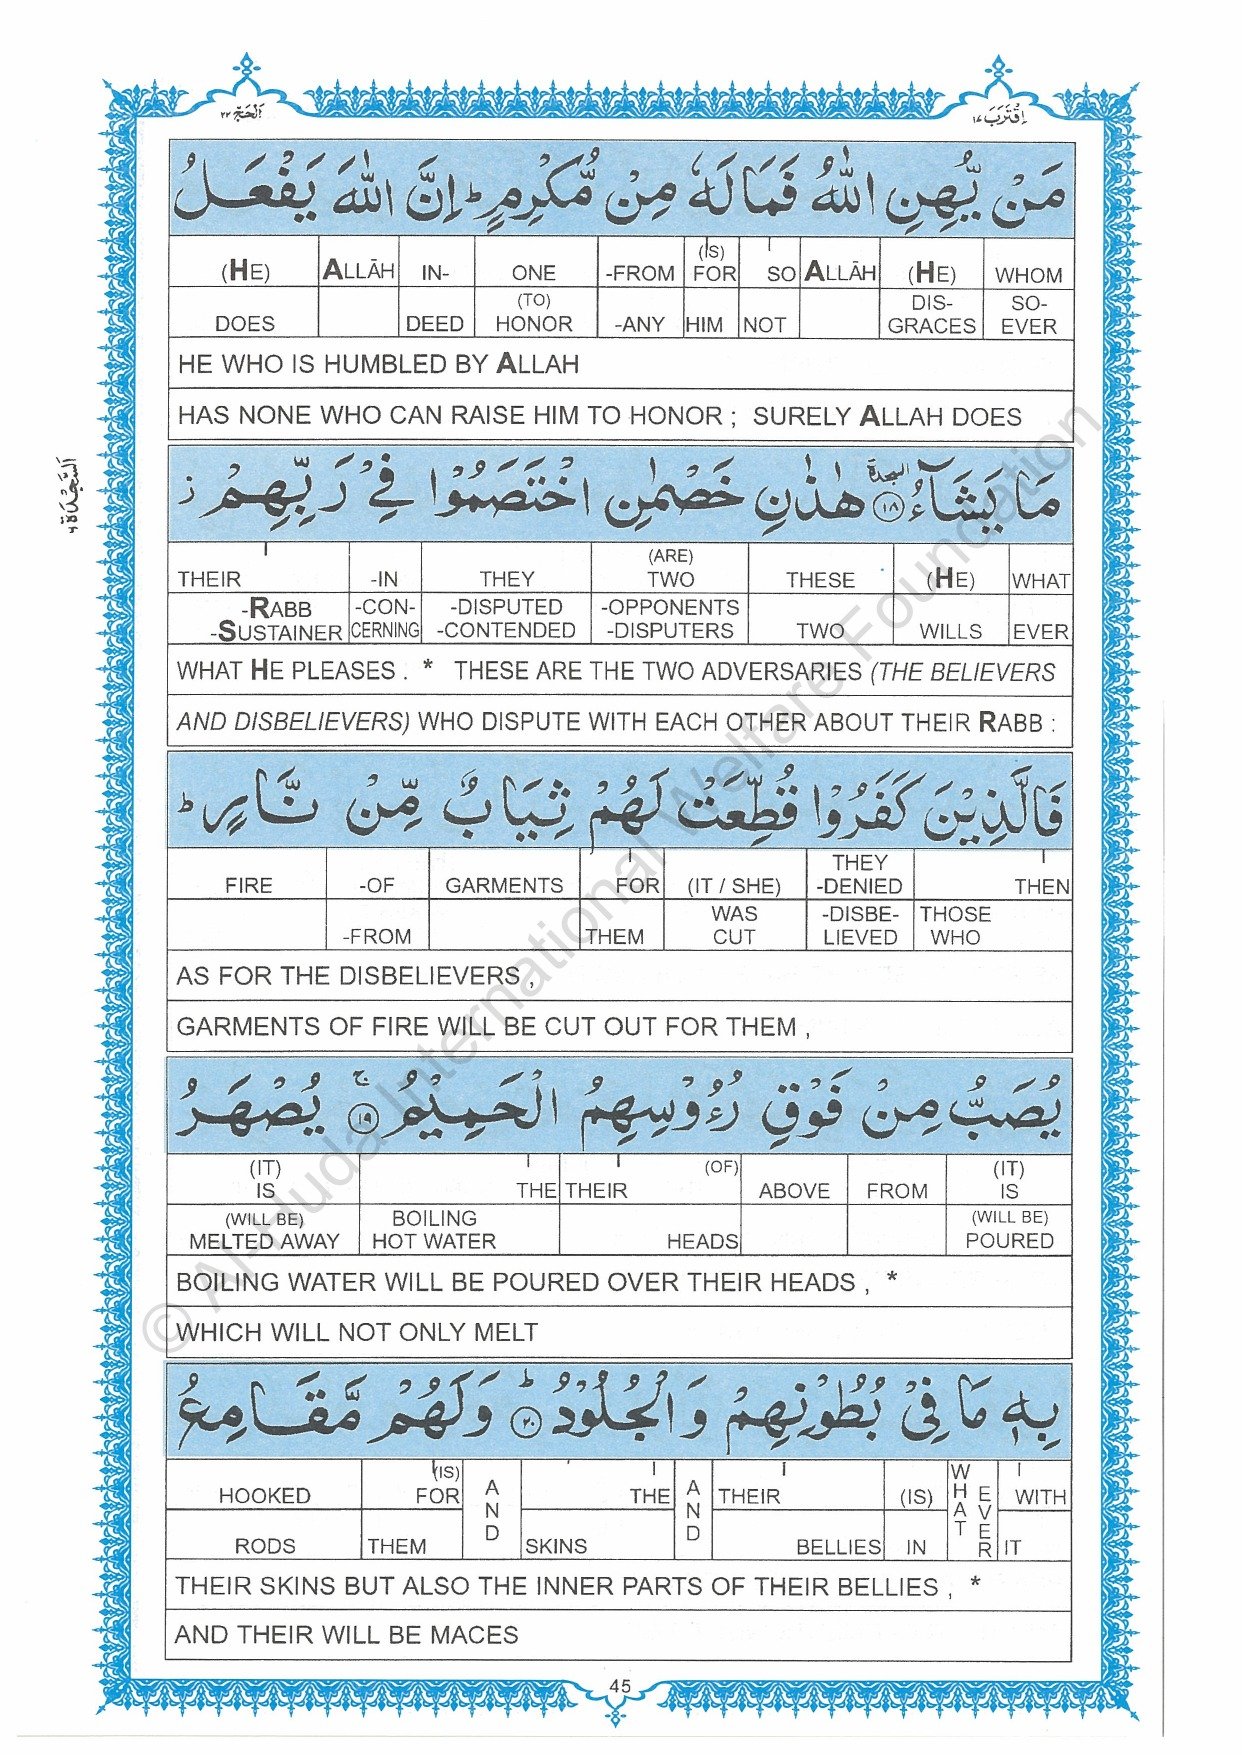 اَلْحَجّ ٢٢
اِقْتَرَبَ ١٧
مَنْ يُّهِنِ اللّٰهُ فَمَا لَهٗ مِنْ مُّكْرِمٍ ؕ اِنَّ اللّٰهَ يَفْعَلُ
(HE) ALLĀH IN- ONE -FROM (IS) FOR SO ALLĀH (HE) WHOM
DOES DEED (TO) HONOR -ANY HIM NOT DIS- GRACES SO- EVER
HE WHO IS HUMBLED BY ALLAH
HAS NONE WHO CAN RAISE HIM TO HONOR ; SURELY ALLAH DOES
اَلسَّجْدَة ٦
مَا يَشَآءُ ۩ السجدة ١٨ هٰذٰنِ خَصْمٰنِ اخْتَصَمُوْا فِيْ رَبِّهِمْ ز
THEIR -IN THEY (ARE) TWO THESE (HE) WHAT
-RABB -SUSTAINER -CON- CERNING -DISPUTED -CONTENDED -OPPONENTS -DISPUTERS TWO WILLS EVER
WHAT HE PLEASES . * THESE ARE THE TWO ADVERSARIES (THE BELIEVERS
AND DISBELIEVERS) WHO DISPUTE WITH EACH OTHER ABOUT THEIR RABB :
فَالَّذِيْنَ كَفَرُوْا قُطِّعَتْ لَهُمْ ثِيَابٌ مِّنْ نَّارٍ ؕ
FIRE -OF GARMENTS FOR (IT / SHE) THEY -DENIED THEN
-FROM THEM WAS CUT -DISBE- LIEVED THOSE WHO
AS FOR THE DISBELIEVERS ,
GARMENTS OF FIRE WILL BE CUT OUT FOR THEM ,
يُصَبُّ مِنْ فَوْقِ رُءُوْسِهِمُ الْحَمِيْمُ ۚ ١٩ يُصْهَرُ
(IT) IS THE THEIR (OF) ABOVE FROM (IT) IS
(WILL BE) MELTED AWAY BOILING HOT WATER HEADS (WILL BE) POURED
BOILING WATER WILL BE POURED OVER THEIR HEADS , *
WHICH WILL NOT ONLY MELT
بِهٖ مَا فِيْ بُطُوْنِهِمْ وَالْجُلُوْدُ ؕ ٢٠ وَلَهُمْ مَّقَامِعُ
HOOKED (IS) FOR AND THE AND THEIR (IS) WHAT EVER WITH
RODS THEM SKINS BELLIES IN IT
THEIR SKINS BUT ALSO THE INNER PARTS OF THEIR BELLIES , *
AND THEIR WILL BE MACES
45
© Al-Huda International Welfare Foundation